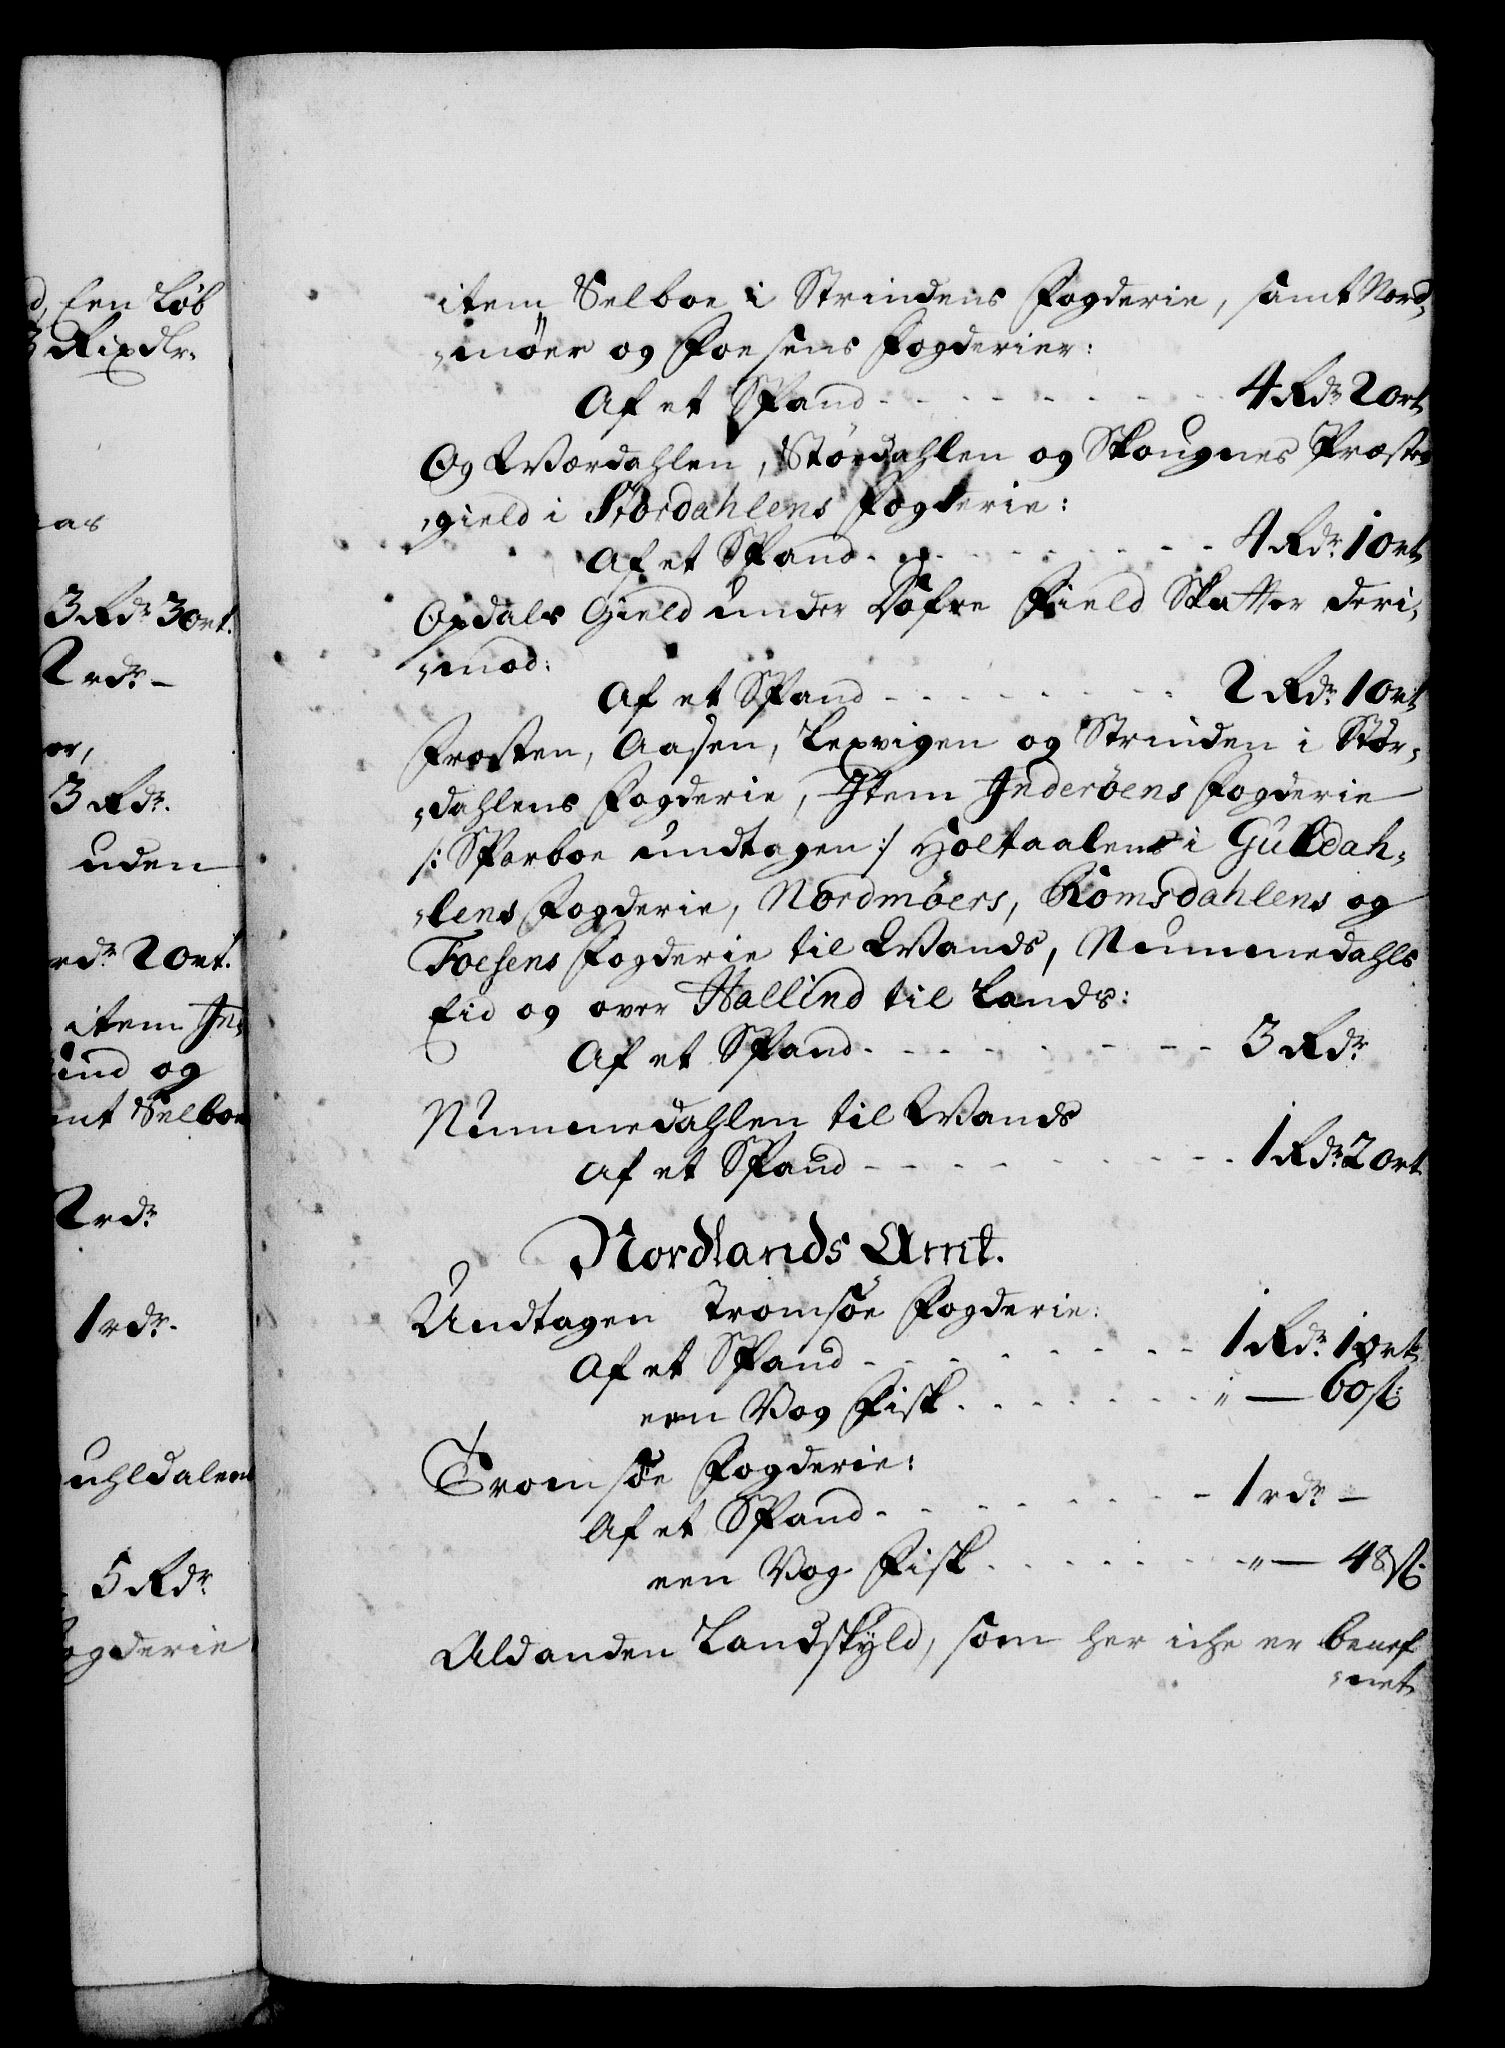 d, Een Løb
3 Rixdlr.
aas
3 Rdr 3 ort.
2 rdr –
er,
3 Rdr.
uden
rdr 2 ort.
item In-
ind og
mt Selboe
2 rdr
1 rdr.
uhldalens
5 Rdr
ogderie
item Selboe i Strindens Fogderie, samt Nord-
-möer og Foesens Fogderier:
Af et Spand - - - - - - - - 4 Rdr 2 ort
Og Wærdahlen, Stördahlen og Skougnes Præste-
-gield i Stördahlens Fogderie:
Af et Spand - - - - - - - - 4 Rdr 1 ort
Opdals Gield under Dofre Field Skatter deri-
-mod:
Af et Spand - - - - - - - - 2 Rdr 1 ort
Frosten, Aasen, Lexvigen og Strinden i Stör-
-dahlens Fogderie, Item Inderöens Fogderie
/: Sparboe undtagen :/ Holtaalens i Guldah-
-lens Fogderie, Nordmöers, Romsdahlens og
Foesens Fogderie til Wands, Nummedahls
Eid og over Hallind til Lands:
Af et Spand - - - - - - - - 3 Rdr
Nummedahlen til Wands
Af et Spand - - - - - - - - 1 Rdr 2 ort
Nordlands Amt.
Undtagen Tromsöe Fogderie:
Af et Spand - - - - - - - - 1 Rdr 1 ort
een Vog Fisk - - - - - - - " — 60 s:
Tromsöe Fogderie:
Af et Spand - - - - - - - - 1 rdr –
een Vog Fisk - - - - - - - " — 48 s:
Ald anden Landskyld, som her iche er benef
-net